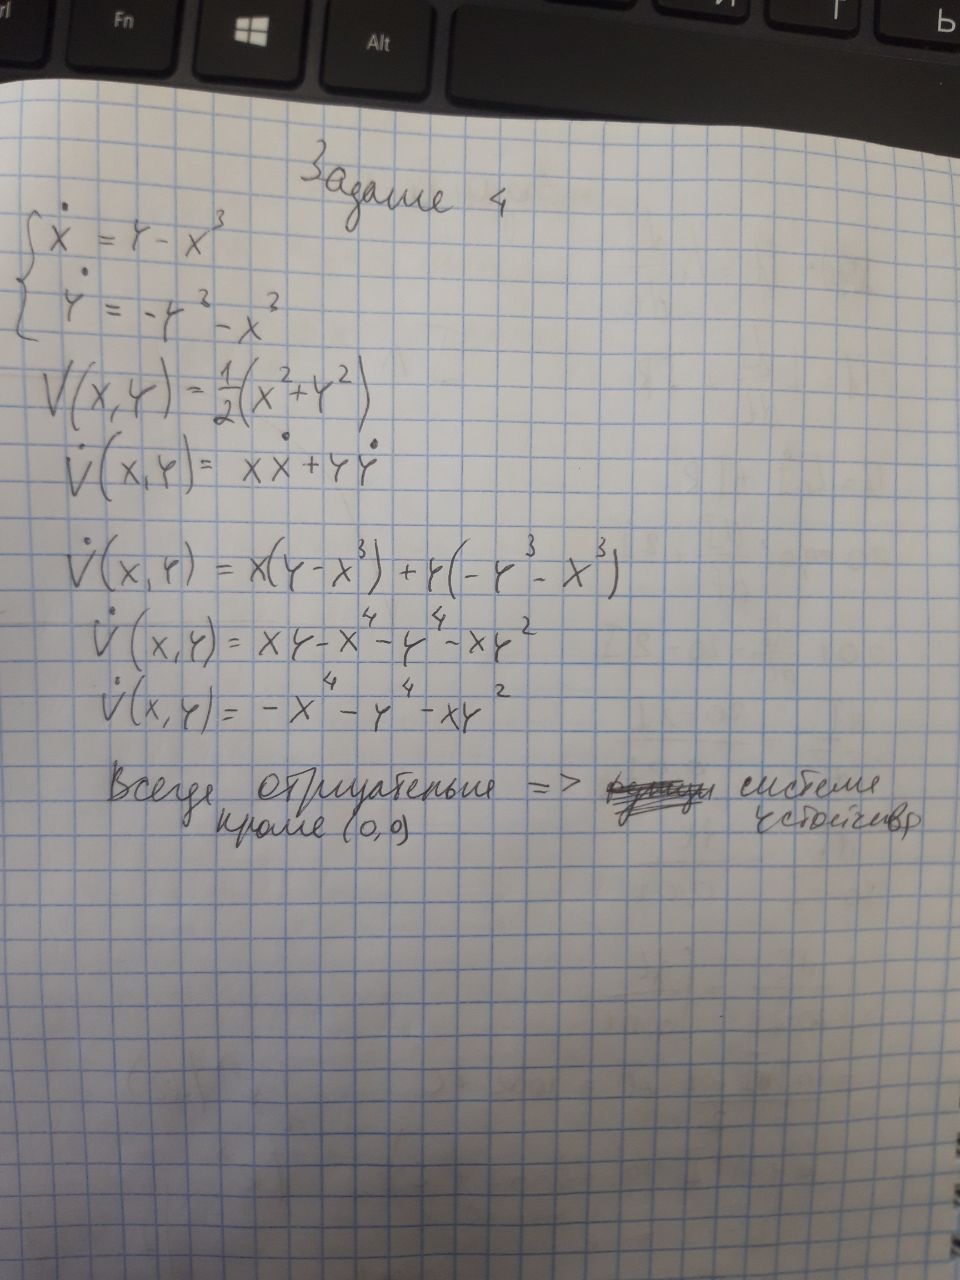 Fn
Alt
Й
Г
Ь
Задание 4
ẋ = y - x³
ẏ = -y³ - x³
V(x,y) = 1/2(x²+y²)
V̇(x,y) = xẋ + yẏ
V̇(x,y) = x(y-x³) + y(-y³-x³)
V̇(x,y) = xy - x⁴ - y⁴ - xy²
V̇(x,y) = -x⁴ - y⁴ - xy²
Всегда отрицательные => система
кроме (0,0) устойчива